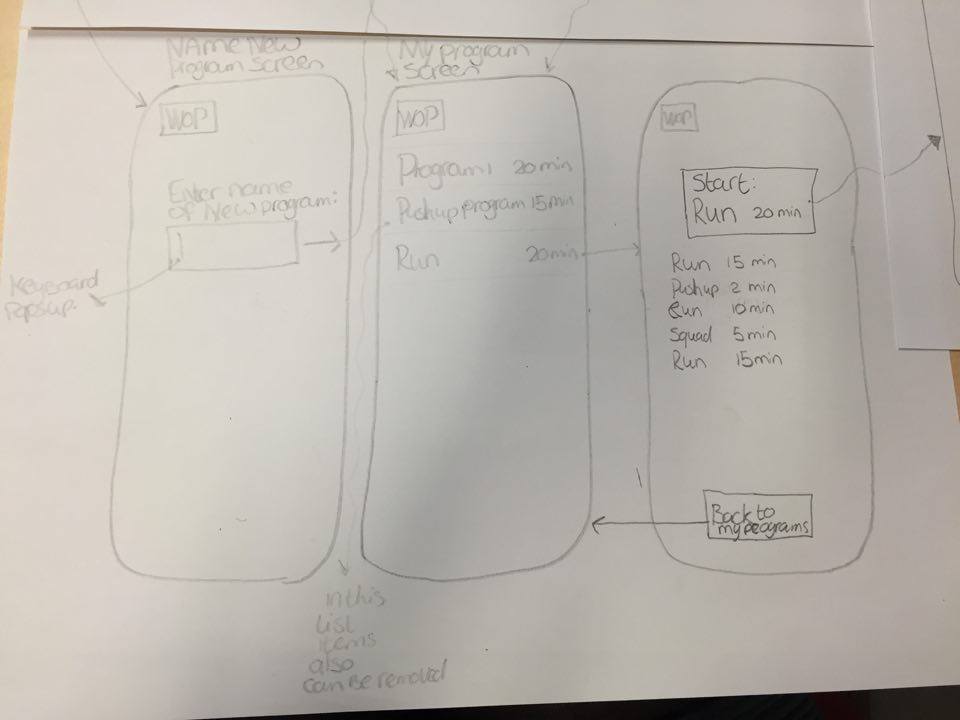 NAme New
Program Screen
WOP
Enter name
of New program:
Keyboard
Popsup.
My program
Screen
WOP
Program 1 20 min
Pushup program 15 min
Run 20 min
in this
List
items
also
can be removed
WOP
Start:
Run 20 min
Run 15 min
Pushup 2 min
Run 10 min
Squad 5 min
Run 15 min
Back to
my programs